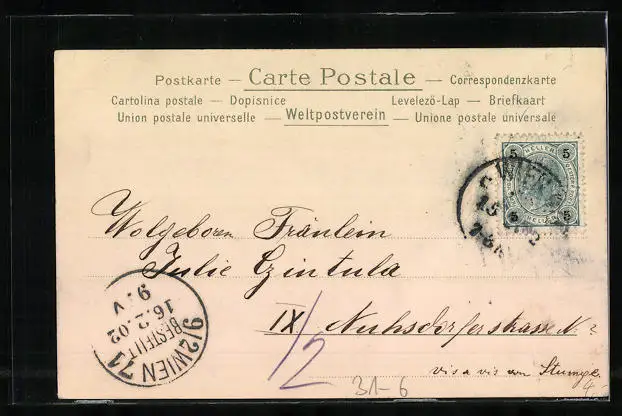 Postkarte — Carte Postale — Correspondenzkarte
Cartolina postale — Dopisnice Levelező-Lap — Briefkaart
Union postale universelle — Weltpostverein — Unione postale universale
5 5
HELLER
5 5
WIEN
Wolgeboren Fräulein
Julie Czintula
IX/2 Nuhsdorferstrasse N:
vis a vis von
9/2 WIEN 71
BESTELLT
16.2.02
9.V
31-6
4.-